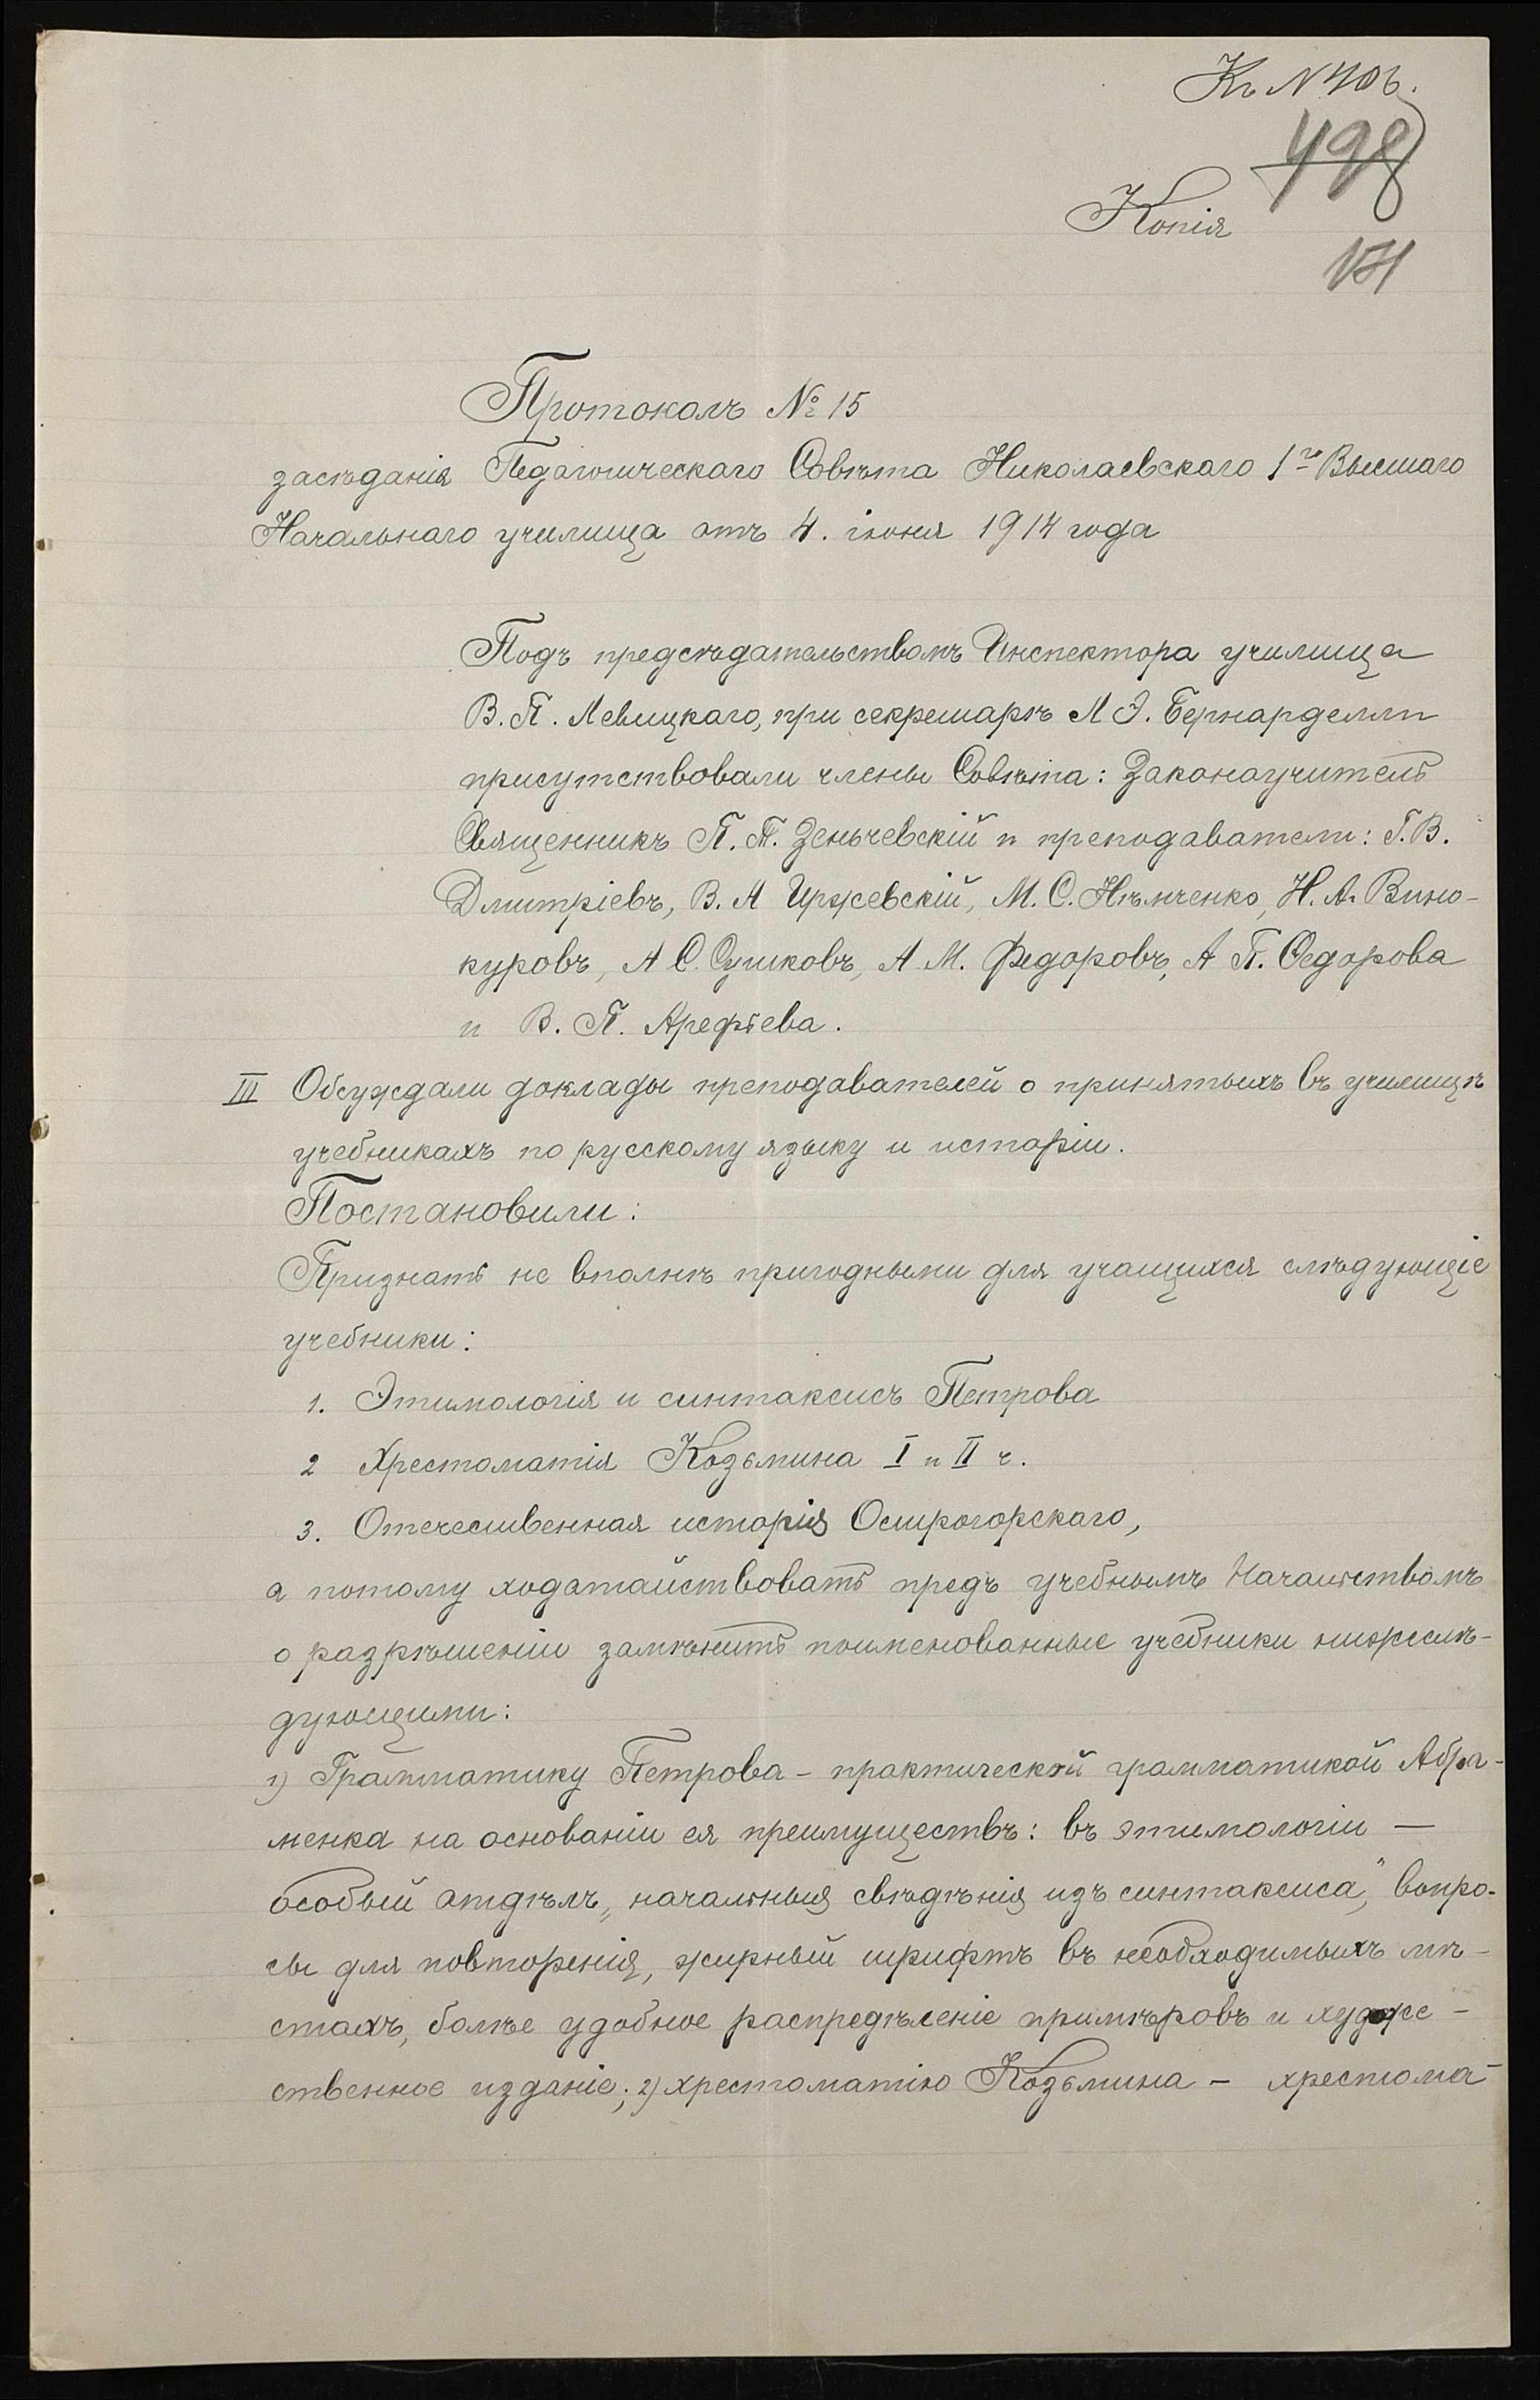 Къ N 406.
498
Копія
Протоколъ № 15
засѣданія Педагогическаго Совѣта Николаевскаго 1го Высшаго
Начальнаго училища отъ 4. іюня 1914 года
Подъ предсѣдательствомъ Инспектора училища
В. П. Левицкаго, при секретарѣ Л Э. Бернарделли
присутствовали члены Совѣта: Законоучитель
Священникъ П. Т. Зеньчевскій и преподаватели: Г. В.
Дмитріевъ, В. А Иржевскій, М. С. Нѣмченко, Н. А. Вино-
куровъ, А С. Сушковъ, А. М. Федоровъ, А П. Ѳедорова
и В. П. Арефьева.
III Обсуждали доклады преподавателей о принятыхъ въ училищѣ
учебникахъ по русскому языку и исторіи.
Постановили:
Признать не вполнѣ пригодными для учащихся слѣдующіе
учебники:
1. Этимологія и синтаксисъ Петрова
2 Хрестоматія Козьмина I и II ч.
3. Отечественная исторія Острогорскаго,
а потому ходатайствовать предъ учебнымъ Начальствомъ
о разрѣшеніи замѣнить поименованные учебники нижеслѣ-
дующими:
1) Грамматику Петрова – практической грамматикой Абра-
менка на основаніи ея преимуществъ: въ этимологіи —
особый отдѣлъ „начальныя свѣдѣнія изъ синтаксиса", вопро-
сы для повторенія, жирный шрифтъ въ необходимыхъ мѣ-
стахъ, болѣе удобное распредѣленіе примѣровъ и художе-
ственное изданіе; 2) хрестоматію Козьмина – хрестома-